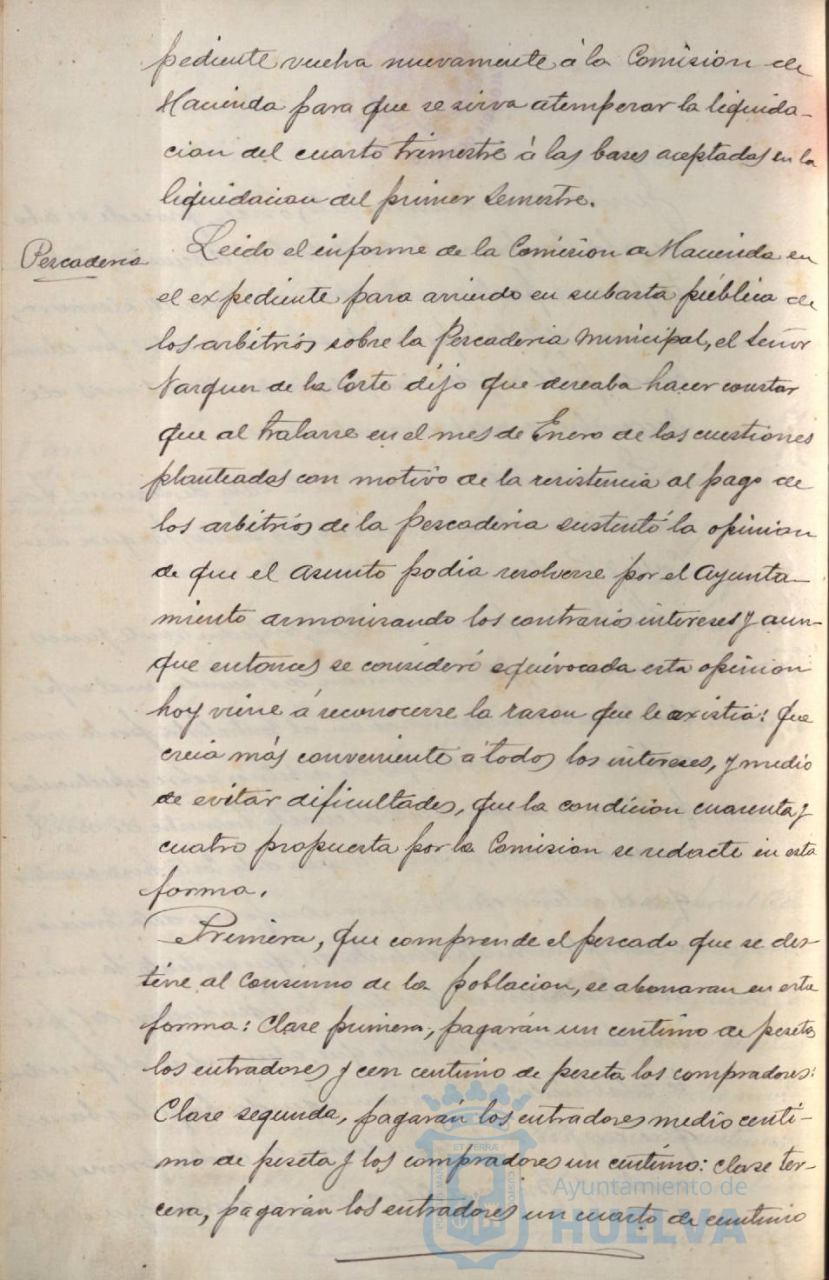 pediente vuelva nuevamente á la Comision de
Hacienda para que se sirva atemperar la liquida-
cion del cuarto trimestre á las bases aceptadas en la
liquidacion del primer Semestre.
Pescaderia
Leido el informe de la Comision de Hacienda en
el expediente para arriendo en subasta pública de
los arbitrios sobre la Pescaderia Municipal, el Señor
Vazquez de la Corte dijo que deseaba hacer constar
que al tratarse en el mes de Enero de las cuestiones
planteadas con motivo de la resistencia al pago de
los arbitrios de la Pescaderia sustentó la opinion
de que el asunto podia resolverse por el Ayunta-
miento armonizando los contrarios intereses y aun-
que entonces se consideró equivocada esta opinion
hoy viene á reconocerse la razon que le existia: que
creia más conveniente á todos los intereses, y medio
de evitar dificultades, que la condicion cuarenta y
cuatro propuesta por la Comision se redacte en esta
forma.
Primera, que comprende el pescado que se des-
tine al Consumo de la poblacion, se abonaran en esta
forma: Clase primera, pagarán un centimo de peseta
los entradores y cen centimo de peseta los compradores:
Clase segunda, pagarán los entradores medio centi-
mo de peseta y los compradores un centimo: clase ter-
cera, pagarán los entradores un cuarto de centimo
Ayuntamiento de
HUELVA